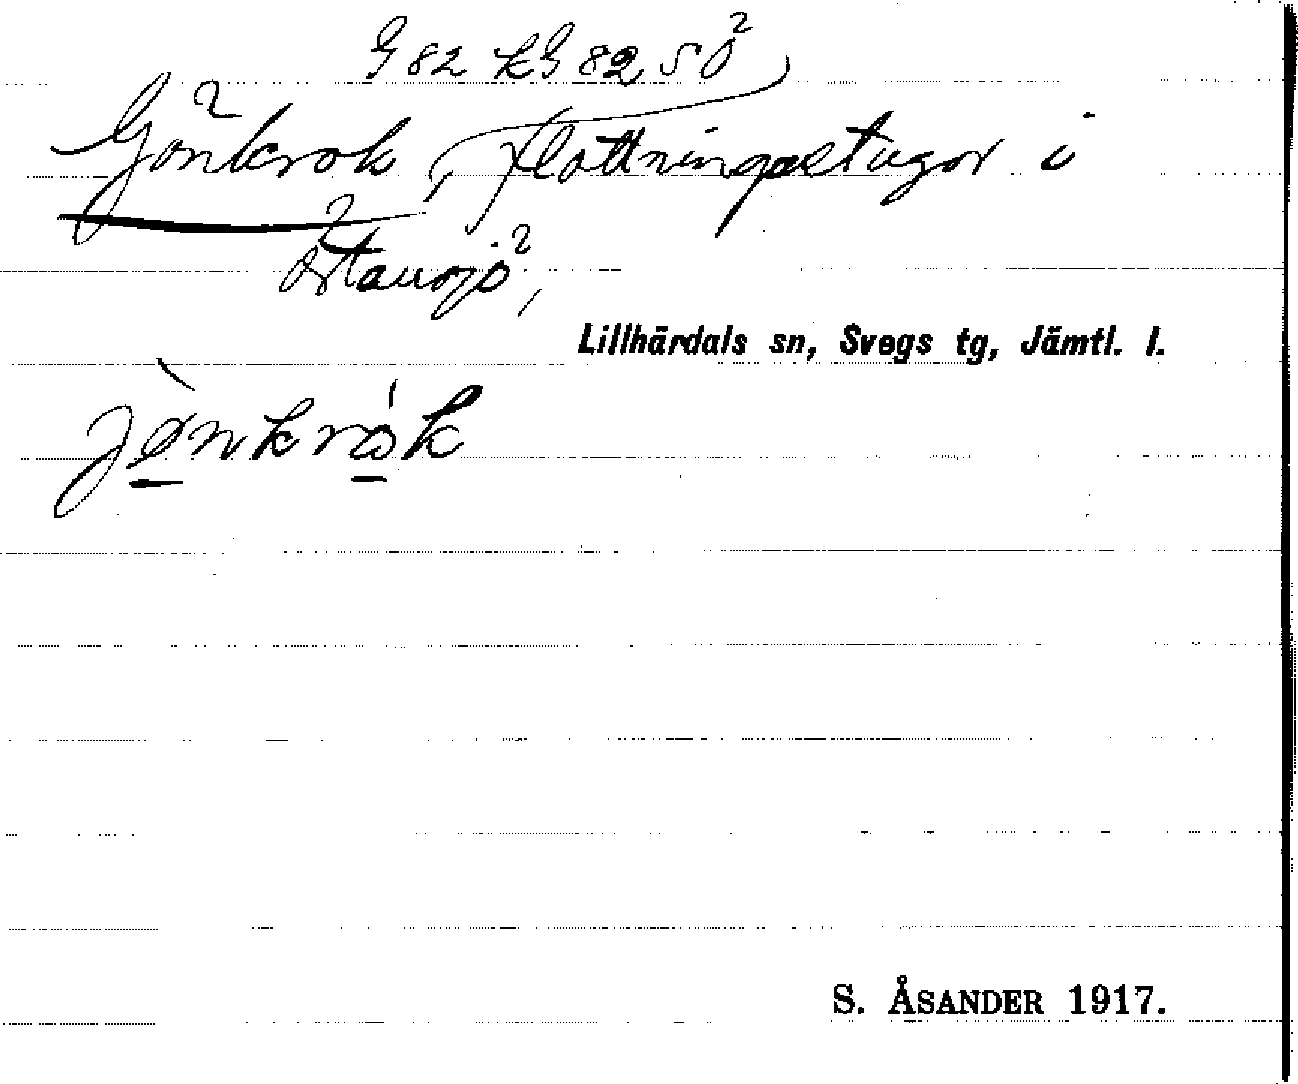 G 82 KG 82 SÖ
Gönkrok, Flottningsstugor i
Lillhärdals sn, Svegs tg, Jämtl. l.
S. ÅSANDER 1917.